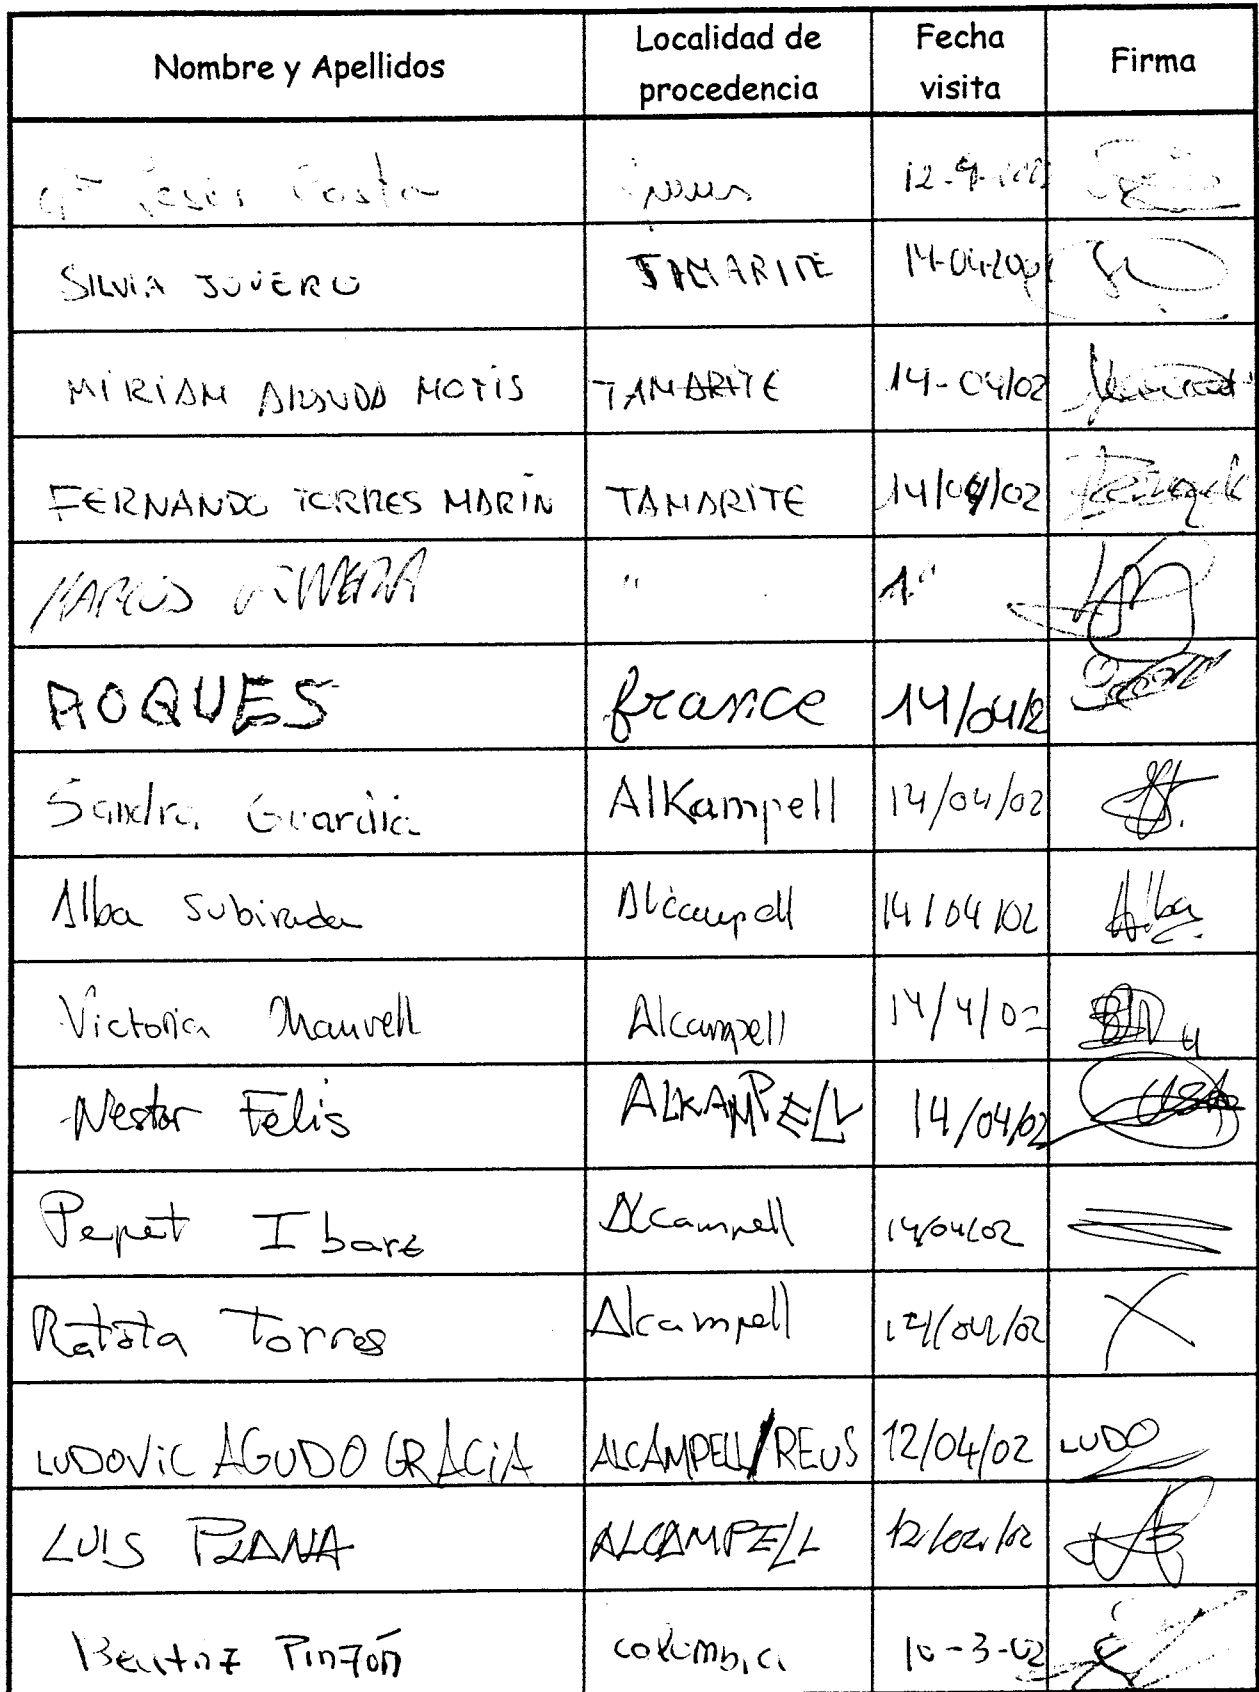 Nombre y Apellidos Localidad de procedencia Fecha visita Firma
Mª Jesús Costa 12-4-2002
SILVIA JOVERO TAMARITE 14-04-200
MIRIAM MOTIS TAMARITE 14-04/02
FERNANDO TORRES MARÍN TAMARITE 14/04/02
MARCOS " "
ROQUES france 14/04/2
Sandra Guardia AlKampell 14/04/02
Alba Subirada Alcampell 14/04/02 Alba
Victoria Mauvell Alcampell 14/4/02
Nestor Felis ALKAMPELL 14/04/02
Pepet Ibarz Alcampell 14/04/02
Ratota Torres Alcampell 14/04/02
LUDOVIC AGUDO GRÀCIA ALCAMPELL/REUS 12/04/02 LUDO
LUIS PLANA ALCAMPELL 12/02/02
Beatriz Pinzón colombia 10-3-02